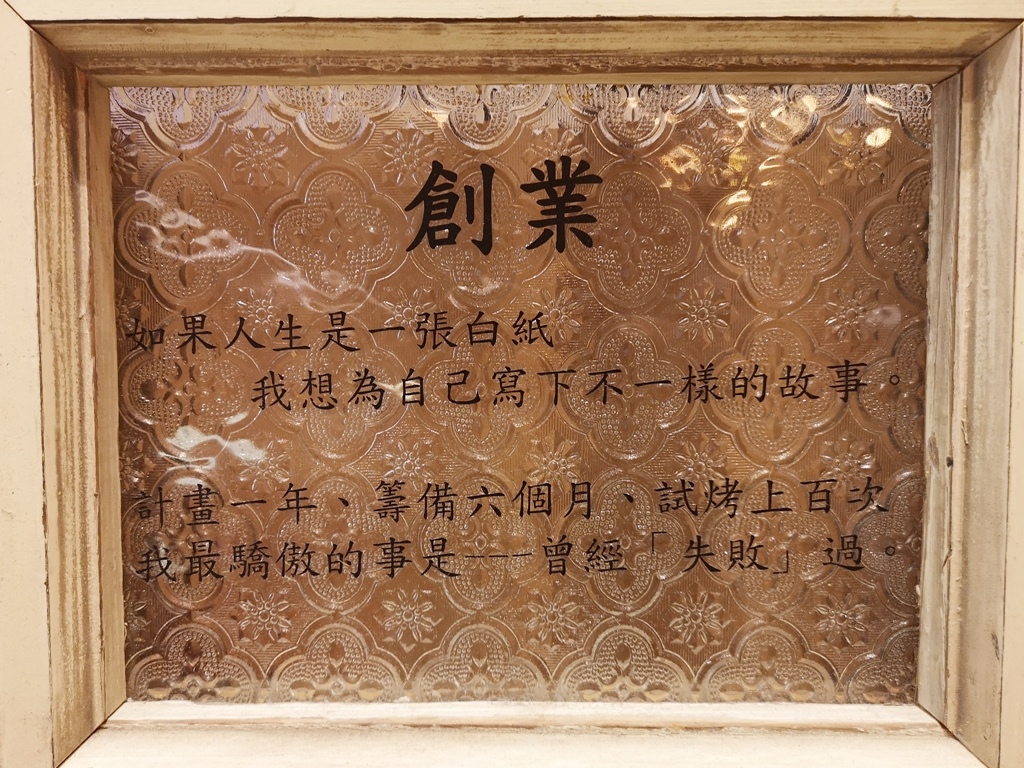 創業
如果人生是一張白紙
我想為自己寫下不一樣的故事。
計畫一年、籌備六個月、試烤上百次
我最驕傲的事是---曾經「失敗」過。